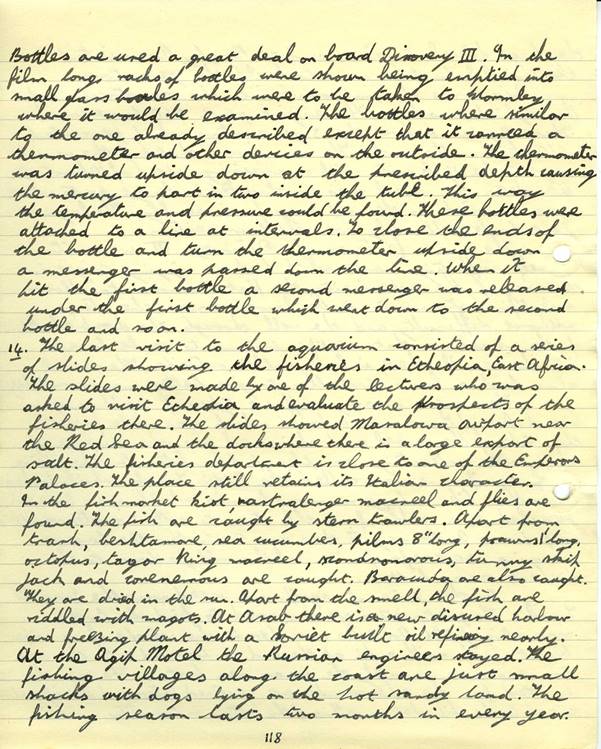 Bottles are used a great deal on board Discovery III. In the
film long racks of bottles were shown being emptied into
small glass bottles which were to be taken to Wormley
where it would be examined. The bottles where similar
to the one already described except that it carried a
thermometer and other devices on the outside. The thermometer
was turned upside down at the prescribed depth causing
the mercury to part in two inside the tube. This way
the temperature and pressure could be found. These bottles were
attached to a line at intervals. To close the ends of
the bottle and turn the thermometer upside down
a messenger was passed down the line. When it
hit the first bottle a second messenger was released
under the first bottle which went down to the second
bottle and so on.
14. The last visit to the aquarium consisted of a series
of slides showing the fisheries in Etheopia, East Africa.
The slides were made by one of the lecturers who was
asked to visit Etheopia and evaluate the prospects of the
fisheries there. The slides showed airport near
the Red Sea and the docks where there is a large export of
salt. The fisheries department is close to one of the Emperors
Palaces. The place still retains its Italian character.
In the fish market and flies are
found. The fish are caught by stern trawlers. Apart from
sea cucumbers, 8" long, prawns 1' long,
octopus, King tunny skip
jack and are caught. Baracuda are also caught.
They are dried in the sun. Apart from the smell, the fish are
riddled with magots. At Asab there is a new disused harbour
and freezing plant with a Soviet built oil refinery nearby.
At the Agip Motel the Russian engineers stayed. The
fishing villages along the coast are just small
shacks with dogs lying on the hot sandy land. The
fishing season lasts two months in every year.
118